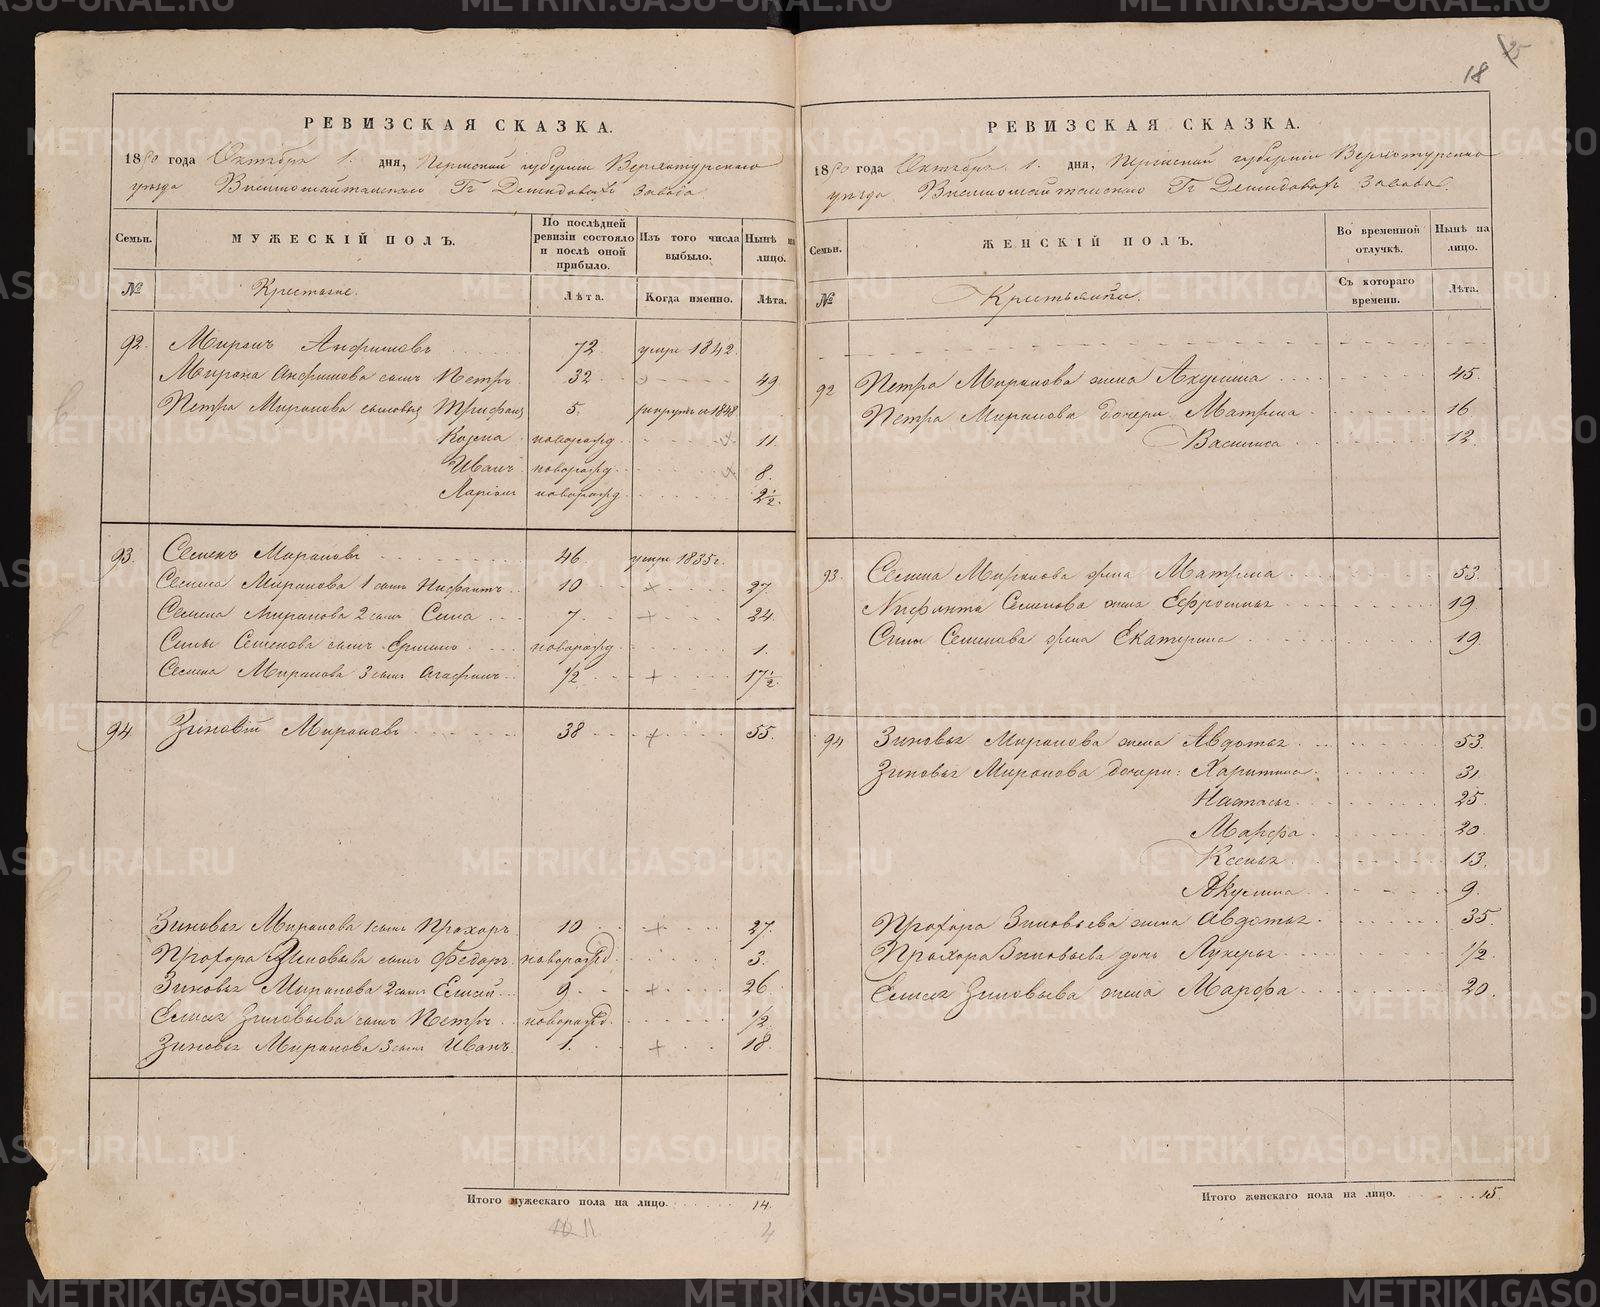 18 25
РЕВИЗСКАЯ СКАЗКА.
1850 года Октября 1. дня, Пермской губернии Верхотурскаго
уезда Висимошайтанскаго Гг Демидовыхъ Завода
Семьи. МУЖЕСКІЙ ПОЛЪ. По послѣдней ревизіи состояло и послѣ оной прибыло. Изъ того числа выбыло. Нынѣ на лицо.
№ Крестьяне. Лѣта. Когда именно. Лѣта.
92. Миронъ Анфимовъ 72 умре 1842.
Мирона Анфимова сынъ Петръ 32 49
Петра Миронова сыновья Трифанъ 5. рекрутъ 1848
Козма новорожд 11.
Иванъ новорожд. 8.
Ларіонъ новорожд 2½.
93. Семенъ Мироновъ 46 умре 1835 г.
Семена Миронова 1 сынъ Нифантъ 10 27.
Семена Миронова 2 сынъ Сила 7 24.
Силы Семенова сынъ новорожд 1.
Семена Миронова 3 сынъ Агафонъ ½ 17½.
94 Зиновій Мироновъ 38 55.
Зиновья Миронова 1 сынъ Прохоръ 10 27.
Прохора Зиновьева сынъ Федоръ новорожд 3.
Зиновья Миронова 2 сынъ Елисей 9 26
Елисея Зиновьева сынъ Петръ новорожд ½
Зиновья Миронова 3 сынъ Иванъ 1. 18.
Итого мужескаго пола на лицо. 14.
11
4
РЕВИЗСКАЯ СКАЗКА.
1850 года Октября 1. дня, Пермской губерніи Верхотурскаго
уезда Висимошайтанскаго Гг Демидовыхъ Завода.
Семьи. ЖЕНСКІЙ ПОЛЪ. Во временной отлучкѣ. Нынѣ на лицо.
№ Крестьянки. Съ котораго времени. Лѣта.
92 Петра Миронова жена Акулина 45.
Петра Миронова дочери Матрена 16
Василиса 12.
93. Семена Миронова жена Матрена 53.
Нифанта Семенова жена Ефросинья 19.
Силы Семенова жена Екатерина 19.
94 Зиновья Миронова жена Авдотья 53.
Зиновья Миронова дочери: Харитина 31.
Настасья 25.
Марфа 20.
Ксенья 13.
Акулина 9.
Прохора Зиновьева жена Авдотья 35.
Прохора Зиновьева дочь Лукерья ½
Елисея Зиновьева жена Марфа 20.
Итого женскаго пола на лицо. 15.
METRIKI.GASO-URAL.RU